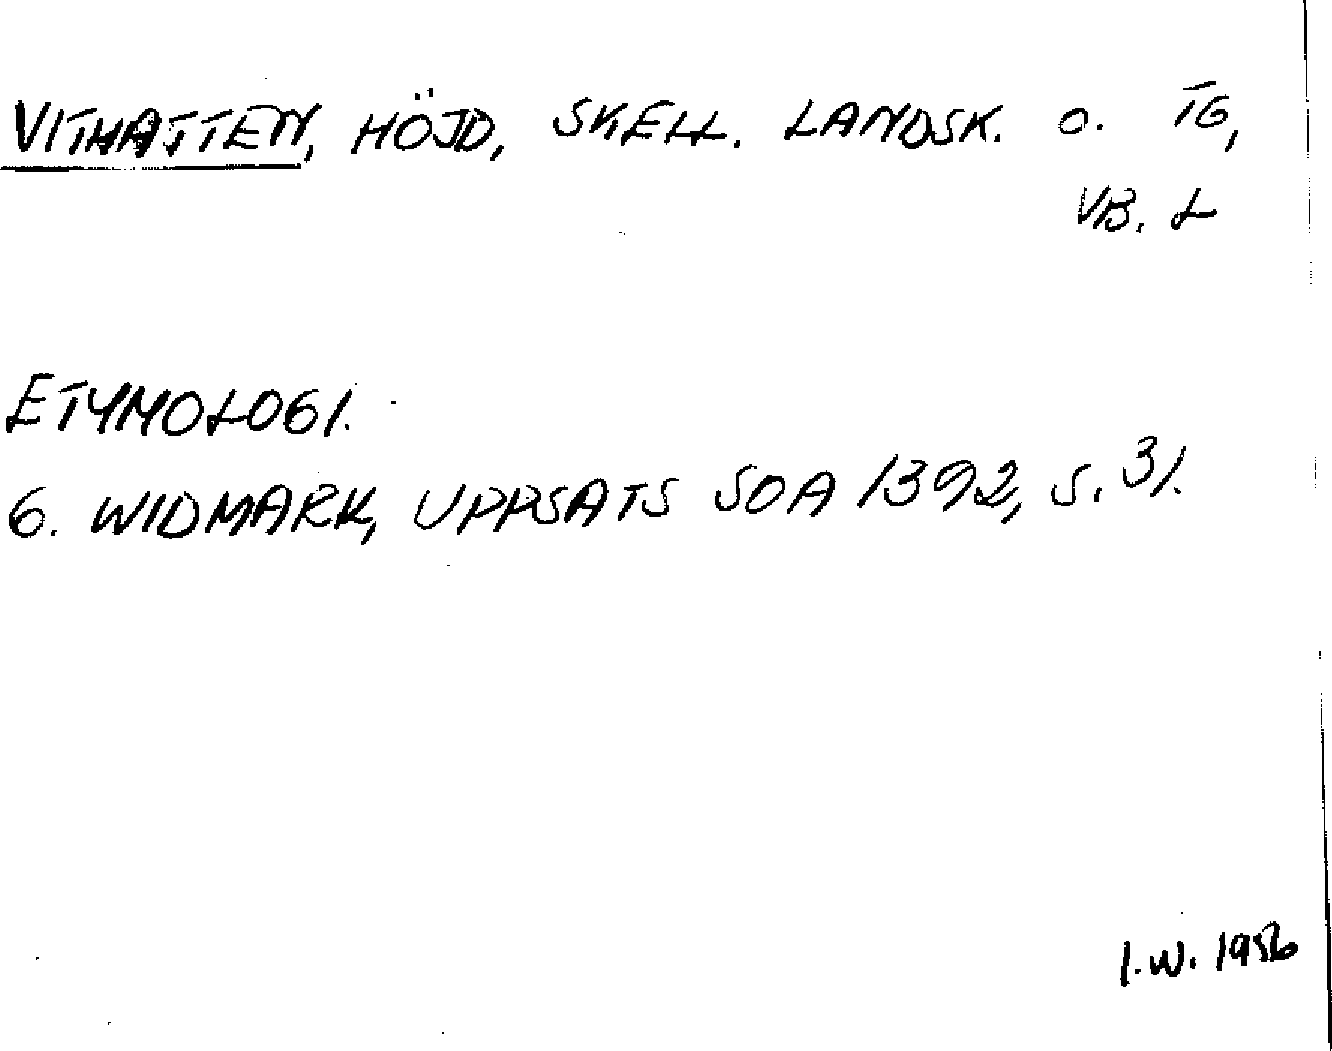 VITHATTEN, HÖJD, SKELL. LANDSK. O. TG,
VB. L
ETYMOLOGI.
G. WIDMARK, UPPSATS SOA 1392, S. 31.
I.W. 1956